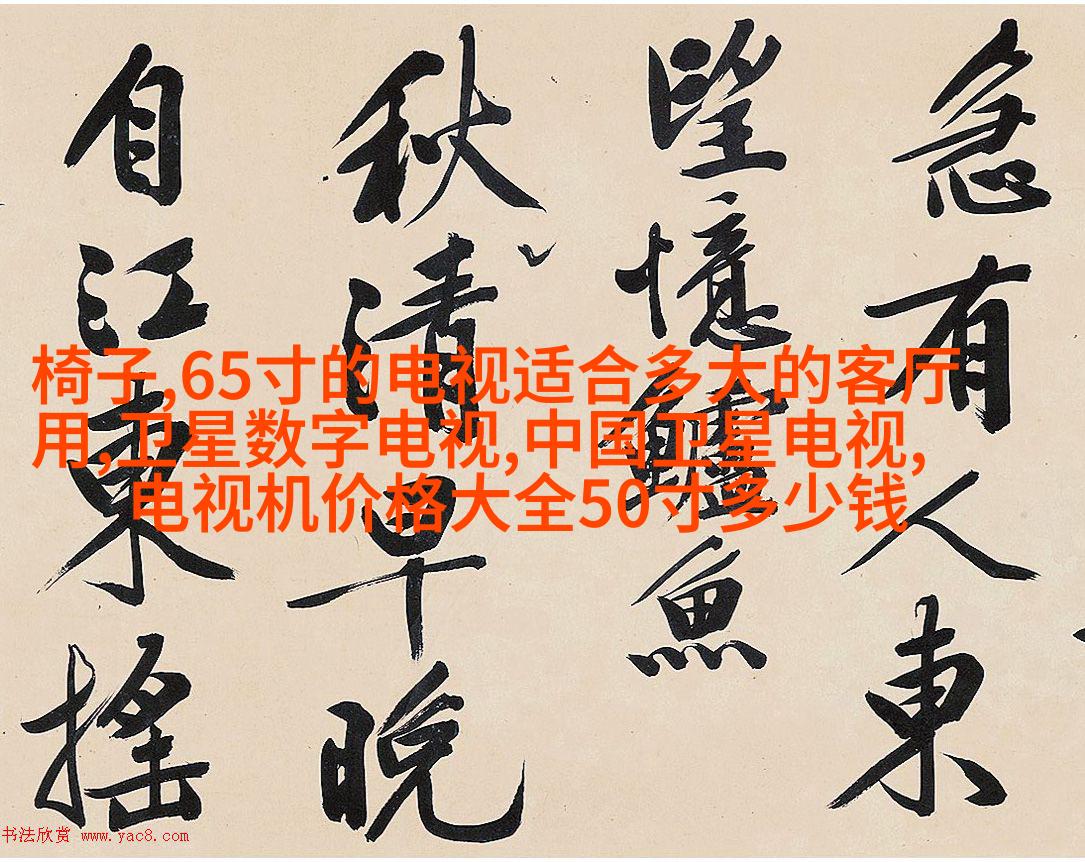 急有人東
望憶鱸魚
秋清早晚
自江東搖
椅子,65寸的电视适合多大的客厅
用,卫星数字电视,中国卫星电视,
电视机价格大全50寸多少钱
书法欣赏 www.yac8.com